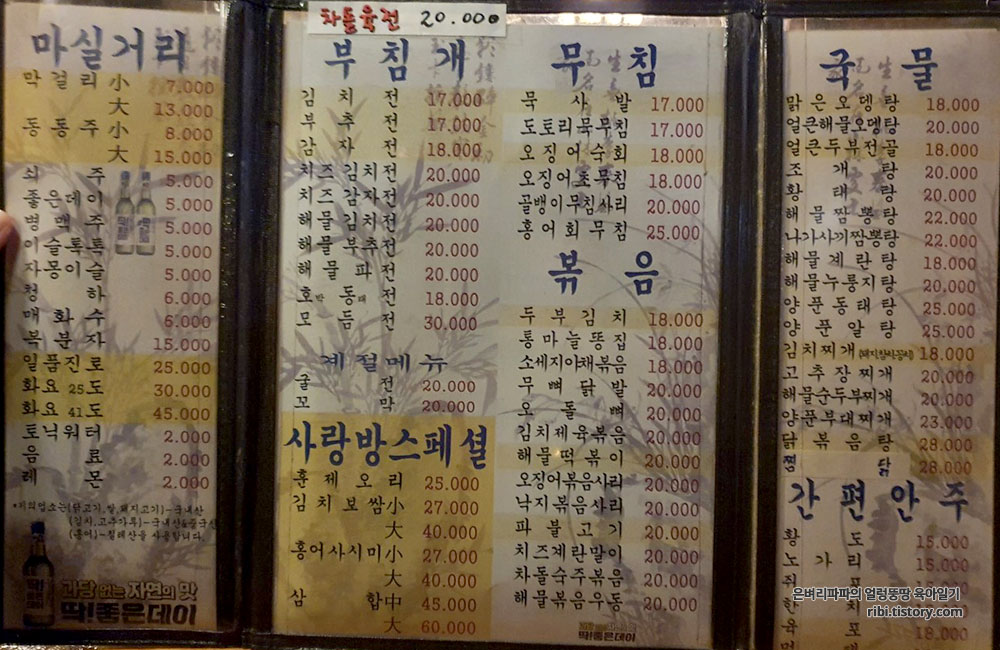 마실거리
막걸리 小 7.000
大 13.000
동동주 小 8.000
大 15.000
쇠주 5.000
좋은데이 5.000
병맥주 5.000
이슬톡톡 5.000
자몽이슬 5.000
청하 6.000
매화수 6.000
복분자 15.000
일품진로 25.000
화요 25도 30.000
화요 41도 45.000
토닉워터 2.000
음료 2.000
레몬 2.000
과당 없는 자연의 맛
딱!좋은데이
차돌육전 20.000
부침개
김치전 17.000
부추전 17.000
감자전 18.000
치즈김치전 20.000
치즈감자전 20.000
해물김치전 20.000
해물부추전 20.000
해물파전 20.000
호박동태전 18.000
모듬전 30.000
계절메뉴
굴전 20.000
꼬막 20.000
사랑방스페셜
훈제오리 25.000
김치보쌈 小 27.000
大 40.000
홍어사시미 小 27.000
大 40.000
삼합 中 45.000
大 60.000
무침
묵사발 17.000
도토리묵무침 17.000
오징어숙회 18.000
오징어초무침 18.000
골뱅이무침사리 20.000
홍어회무침 25.000
볶음
두부김치 18.000
통마늘똥집 18.000
소세지야채볶음 18.000
무뼈닭발 20.000
오돌뼈 20.000
김치제육볶음 20.000
해물떡볶이 20.000
오징어볶음사리 20.000
낙지볶음사리 20.000
파불고기 20.000
치즈계란말이 20.000
차돌숙주볶음 20.000
해물볶음우동 20.000
딱!좋은데이
국물
맑은오뎅탕 18.000
얼큰해물오뎅탕 20.000
얼큰두부전골 18.000
조개탕 20.000
황태탕 20.000
해물짬뽕탕 22.000
나가사끼짬뽕탕 22.000
해물계란탕 18.000
해물누룽지탕 20.000
양푼동태탕 25.000
양푼알탕 25.000
김치찌개 18.000
고추장찌개 20.000
해물순두부찌개 20.000
양푼부대찌개 23.000
닭볶음탕 28.000
찜닭 28.000
간편안주
황도 15.000
노가리 15.000
쥐포 15.000
한치
육포 18.000
은벼리파파의 얼렁뚱땅 육아일기
ribi.tistory.com